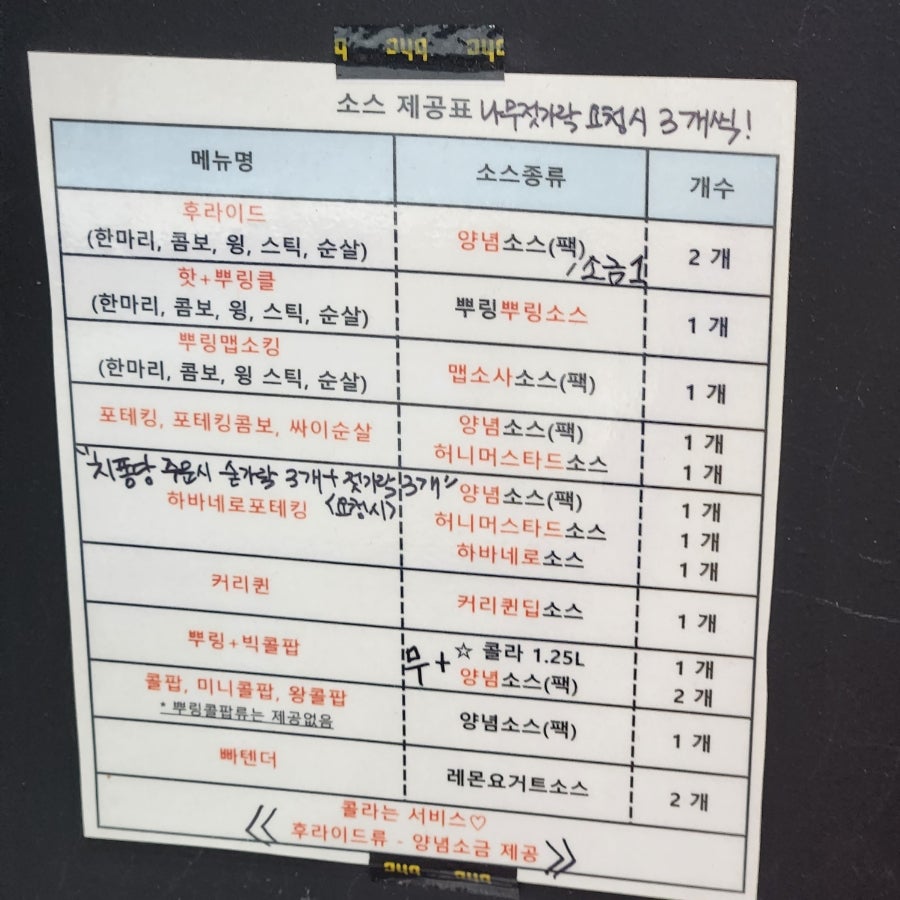 bhc bhc
소스 제공표 나무젓가락 요청시 3개씩!
메뉴명 소스종류 개수
후라이드
(한마리, 콤보, 윙, 스틱, 순살) 양념소스(팩) 2 개
, 소금1
핫+뿌링클
(한마리, 콤보, 윙, 스틱, 순살) 뿌링뿌링소스 1 개
뿌링맵소킹
(한마리, 콤보, 윙 스틱, 순살) 맵소사소스(팩) 1 개
포테킹, 포테킹콤보, 싸이순살 양념소스(팩) 1 개
허니머스타드소스 1 개
"치퐁당 주문시 숟가락 3개+젓가락 3개"
<요청시>
하바네로포테킹 양념소스(팩) 1 개
허니머스타드소스 1 개
하바네로소스 1 개
커리퀸 커리퀸딥소스 1 개
뿌링+빅콜팝 무+ ☆ 콜라 1.25L 1 개
양념소스(팩) 2 개
콜팝, 미니콜팝, 왕콜팝
* 뿌링콜팝류는 제공없음 양념소스(팩) 1 개
빠텐더 레몬요거트소스 2 개
콜라는 서비스♡
《 후라이드류 - 양념소금 제공 》
bhc bhc